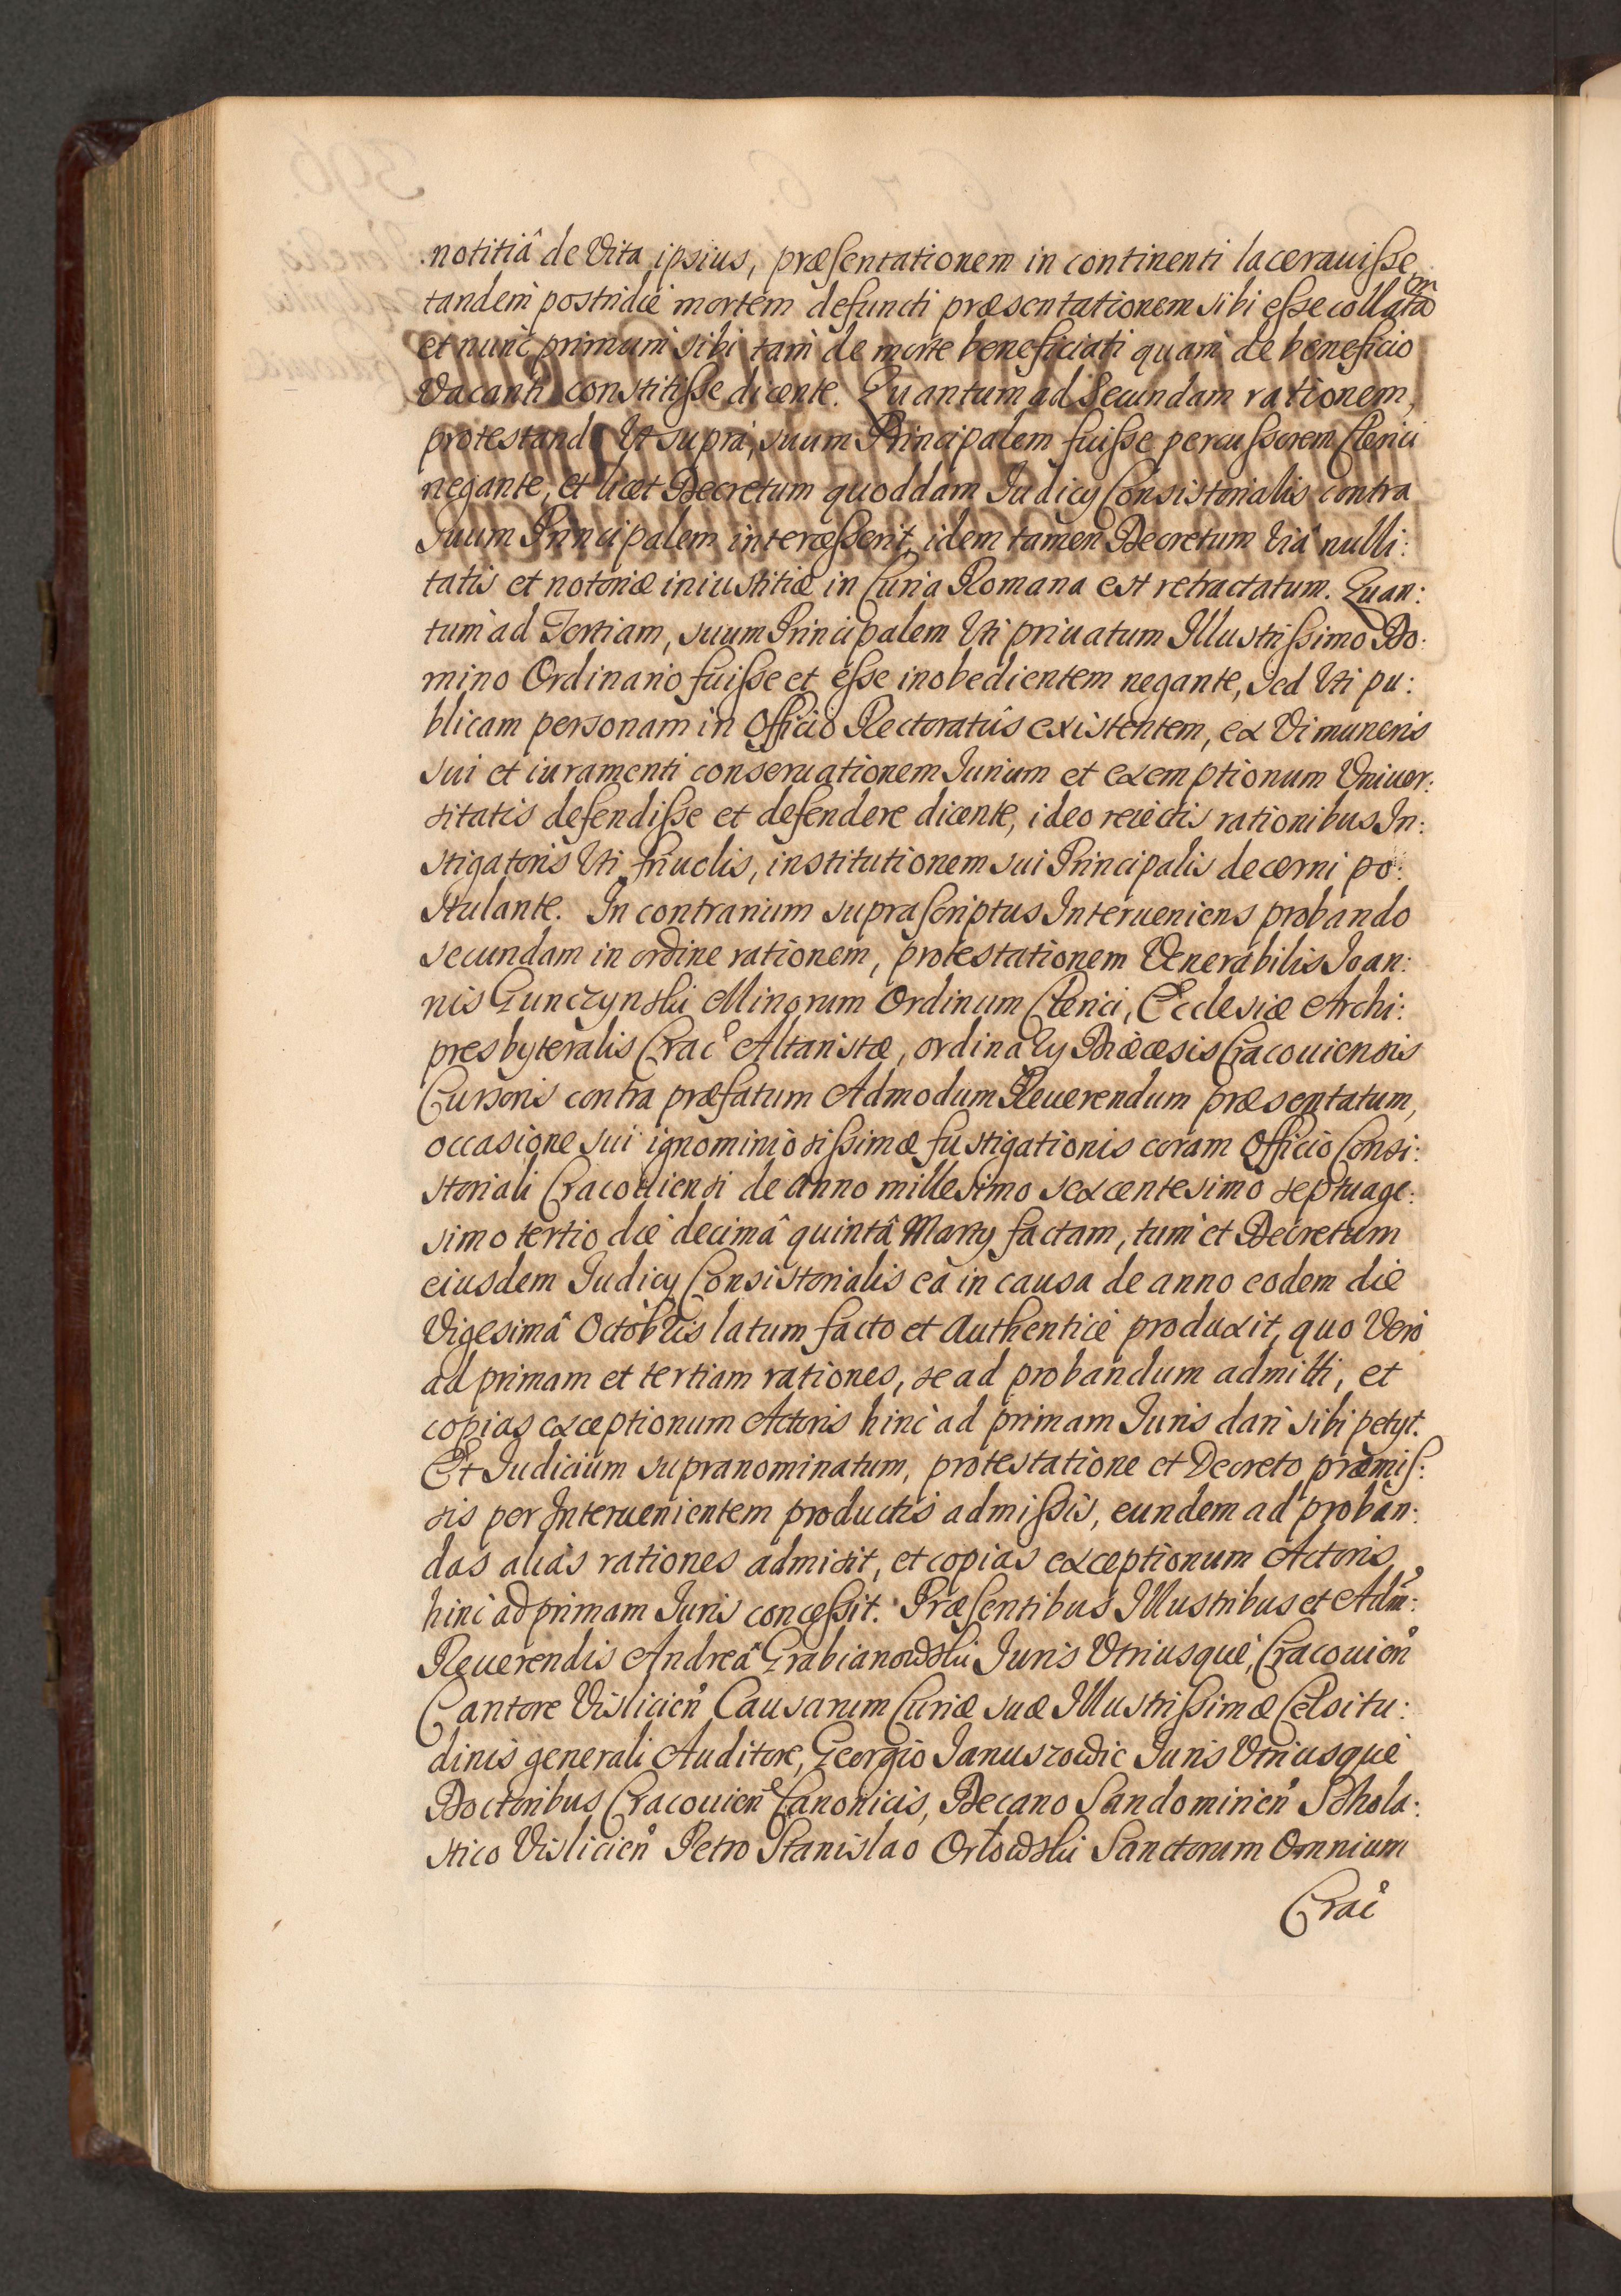 notitiâ de Vita ipsius, præsentationem in continenti lacerauisse
tandem postridie mortem defuncti præsentationem sibi esse collatam
et nunc primum sibi tam de morte beneficiati quam de beneficio
Vacanti constitisse dicente. Quantum ad Secundam rationem,
protestando Vt supra, suum Principalem fuisse percussorem Clerici
negante, et licet Decretum quoddam Iudicij Consistorialis contra
suum Principalem intercesserit, idem tamen Decretum Viâ nulli:
tatis et notoriæ iniustitiæ in Curia Romana est retractatum. Quan:
tum ad Tertiam, suum Principalem Vti priuatum Illustrissimo Do:
mino Ordinario fuisse et esse inobedientem negante, sed Vti pu:
blicam personam in Officio Rectoratûs existentem, ex Vi muneris
sui et iuramenti conseruationem Iurium et exemptionum Vniuer:
sitatis defendisse et defendere dicente, ideo reiectis rationibus In:
stigatoris Vti friuolis, institutionem sui Principalis decerni po:
stulante. In contrarium suprascriptus Interueniens probando
secundam in ordine rationem, protestationem Venerabilis Ioan:
nis Gunczynski Minorum Ordinum Clerici, Ecclesiæ Archi:
presbyteralis Crac Altaristæ, ordinarij Diœcesis Cracouiensis
Cursoris contra præfatum Admodum Reuerendum præsentatum,
occasione sui ignominiosissimæ fustigationis coram Officio Consi:
storiali Cracouiensi de anno millesimo sexcentesimo septuage:
simo tertio die decimâ quintâ Martij factam, tum et Decretum
eiusdem Iudicij Consistorialis eâ in causa de anno eodem die
Vigesimâ Octobris latum facto et Authenticè produxit, quo Verò
ad primam et tertiam rationes, se ad probandum admitti, et
copias exceptionum Actoris hinc ad primam Iuris dari sibi petijt.
Et Iudicium supranominatum, protestatione et Decreto præmis:
sis per Interuenientem productis admissis, eundem ad proban:
das alias rationes admisit, et copias exceptionum Actoris
hinc ad primam Iuris concessit. Præsentibus Illustribus et Adm:
Reuerendis Andreâ Grabianowski Iuris Vtriusque, Cracouien
Cantore Visliciен Causarum Curiæ suæ Illustrissimæ Celsitu:
dinis generali Auditore, Georgio Ianuszowic Iuris Vtriusque
Doctoribus Cracouien Canonicis, Decano Sandomirien Schola:
stico Vislicien Petro Stanislao Orłowski Sanctorum Omnium
Crac